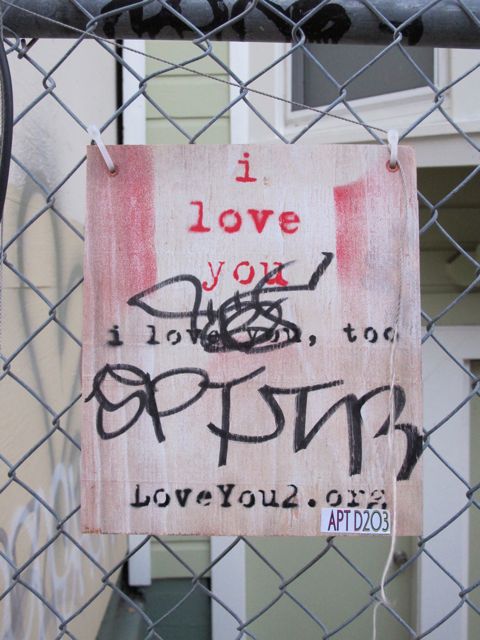 i
love
you
i love you, too
LoveYou2.org
APT D203